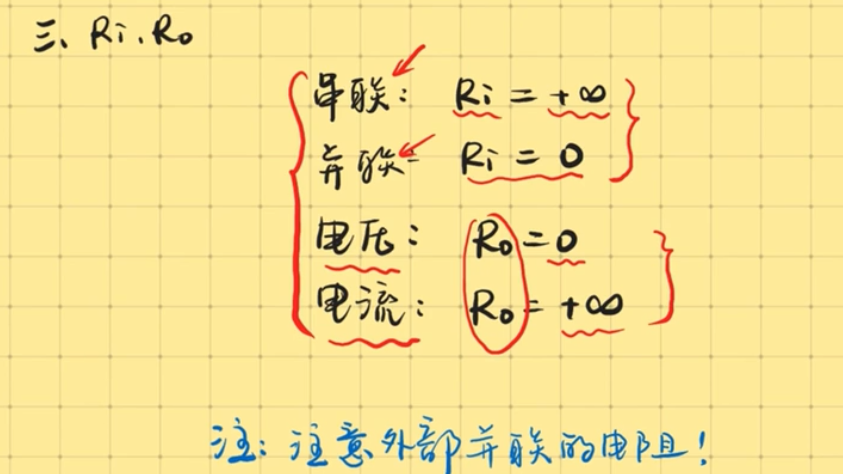 三、Ri、Ro
串联： Ri = +∞
并联： Ri = 0
电压： Ro = 0
电流： Ro = +∞
注：注意外部并联的电阻！